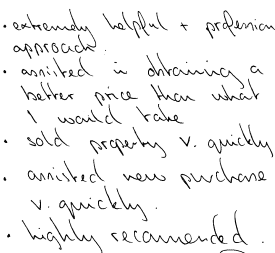 • extremely helpful + profession
approach.
• assisted in obtaining a
better price than what
I would take
• sold property v. quickly
• assisted new purchase
v. quickly.
• highly recommended.